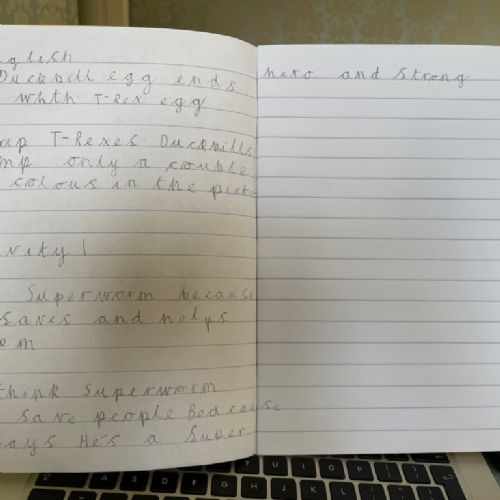 nglish
Duckbill egg ends
whth T-Rex egg
T-Rexes Duckbills
only a couble
colous in the pict
Superworm because
saves and helps
em
think Superworm
save people Beacause
says He's a Super
hero and strong